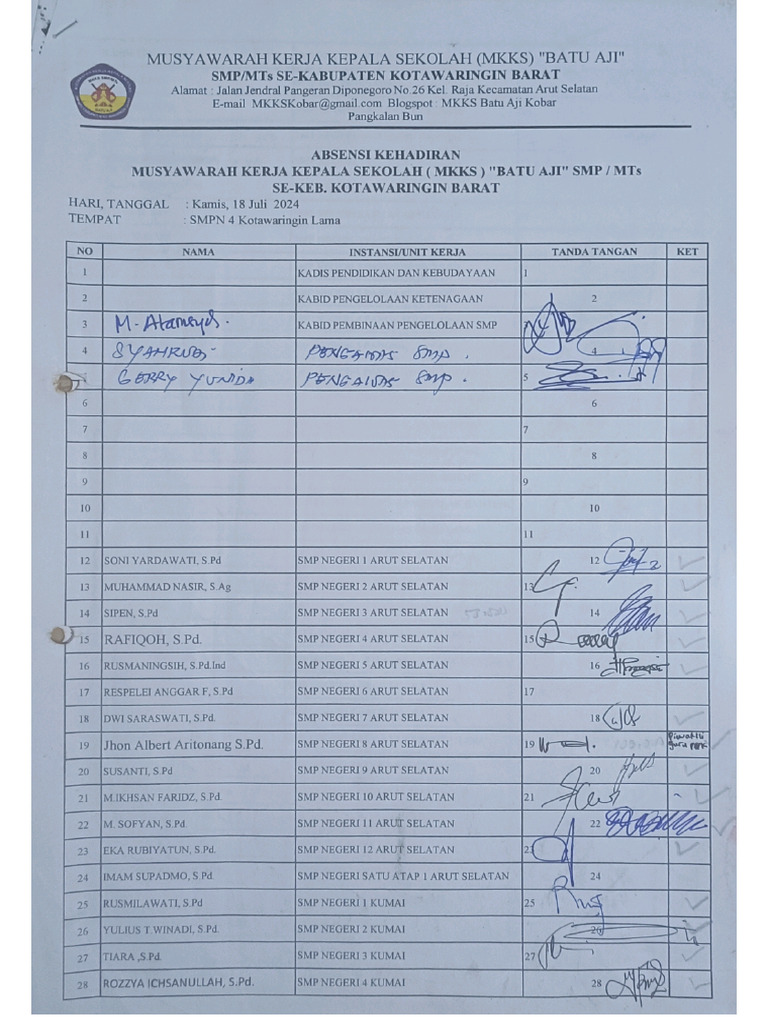 MUSYAWARAH KERJA KEPALA SEKOLAH (MKKS) "BATU AJI"
SMP/MTs SE-KABUPATEN KOTAWARINGIN BARAT
Alamat : Jalan Jendral Pangeran Diponegoro No 26 Kel. Raja Kecamatan Arut Selatan
E-mail MKKSKobar@gmail.com Blogspot : MKKS Batu Aji Kobar
Pangkalan Bun
ABSENSI KEHADIRAN
MUSYAWARAH KERJA KEPALA SEKOLAH ( MKKS ) "BATU AJI" SMP / MTs
SE-KEB. KOTAWARINGIN BARAT
HARI, TANGGAL : Kamis, 18 Juli 2024
TEMPAT : SMPN 4 Kotawaringin Lama
NO NAMA INSTANSI/UNIT KERJA TANDA TANGAN KET
1 KADIS PENDIDIKAN DAN KEBUDAYAAN 1
2 KABID PENGELOLAAN KETENAGAAN 2
3 M. KABID PEMBINAAN PENGELOLAAN SMP
4 SYAHRUD PENGAWAS SMP. 4
GERRY YUNIDA PENGAWAS SMP. 5
6 6
7 7
8 8
9 9
10 10
11 11
12 SONI YARDAWATI, S.Pd SMP NEGERI 1 ARUT SELATAN 12
13 MUHAMMAD NASIR, S.Ag SMP NEGERI 2 ARUT SELATAN 13
14 SIPEN, S.Pd SMP NEGERI 3 ARUT SELATAN 14
15 RAFIQOH, S.Pd. SMP NEGERI 4 ARUT SELATAN 15
16 RUSMANINGSIH, S.Pd.Ind SMP NEGERI 5 ARUT SELATAN 16
17 RESPELEI ANGGAR F, S.Pd SMP NEGERI 6 ARUT SELATAN 17
18 DWI SARASWATI, S.Pd. SMP NEGERI 7 ARUT SELATAN 18
19 Jhon Albert Aritonang S.Pd. SMP NEGERI 8 ARUT SELATAN 19
20 SUSANTI, S.Pd SMP NEGERI 9 ARUT SELATAN 20
21 M.IKHSAN FARIDZ, S.Pd SMP NEGERI 10 ARUT SELATAN 21
22 M. SOFYAN, S.Pd. SMP NEGERI 11 ARUT SELATAN 22
23 EKA RUBIYATUN, S.Pd. SMP NEGERI 12 ARUT SELATAN 23
24 IMAM SUPADMO, S.Pd SMP NEGERI SATU ATAP 1 ARUT SELATAN 24
25 RUSMILAWATI, S.Pd SMP NEGERI 1 KUMAI 25
26 YULIUS T.WINADI, S.Pd. SMP NEGERI 2 KUMAI 26
27 TIARA ,S.Pd. SMP NEGERI 3 KUMAI 27
28 ROZZYA ICHSANULLAH, S.Pd. SMP NEGERI 4 KUMAI 28